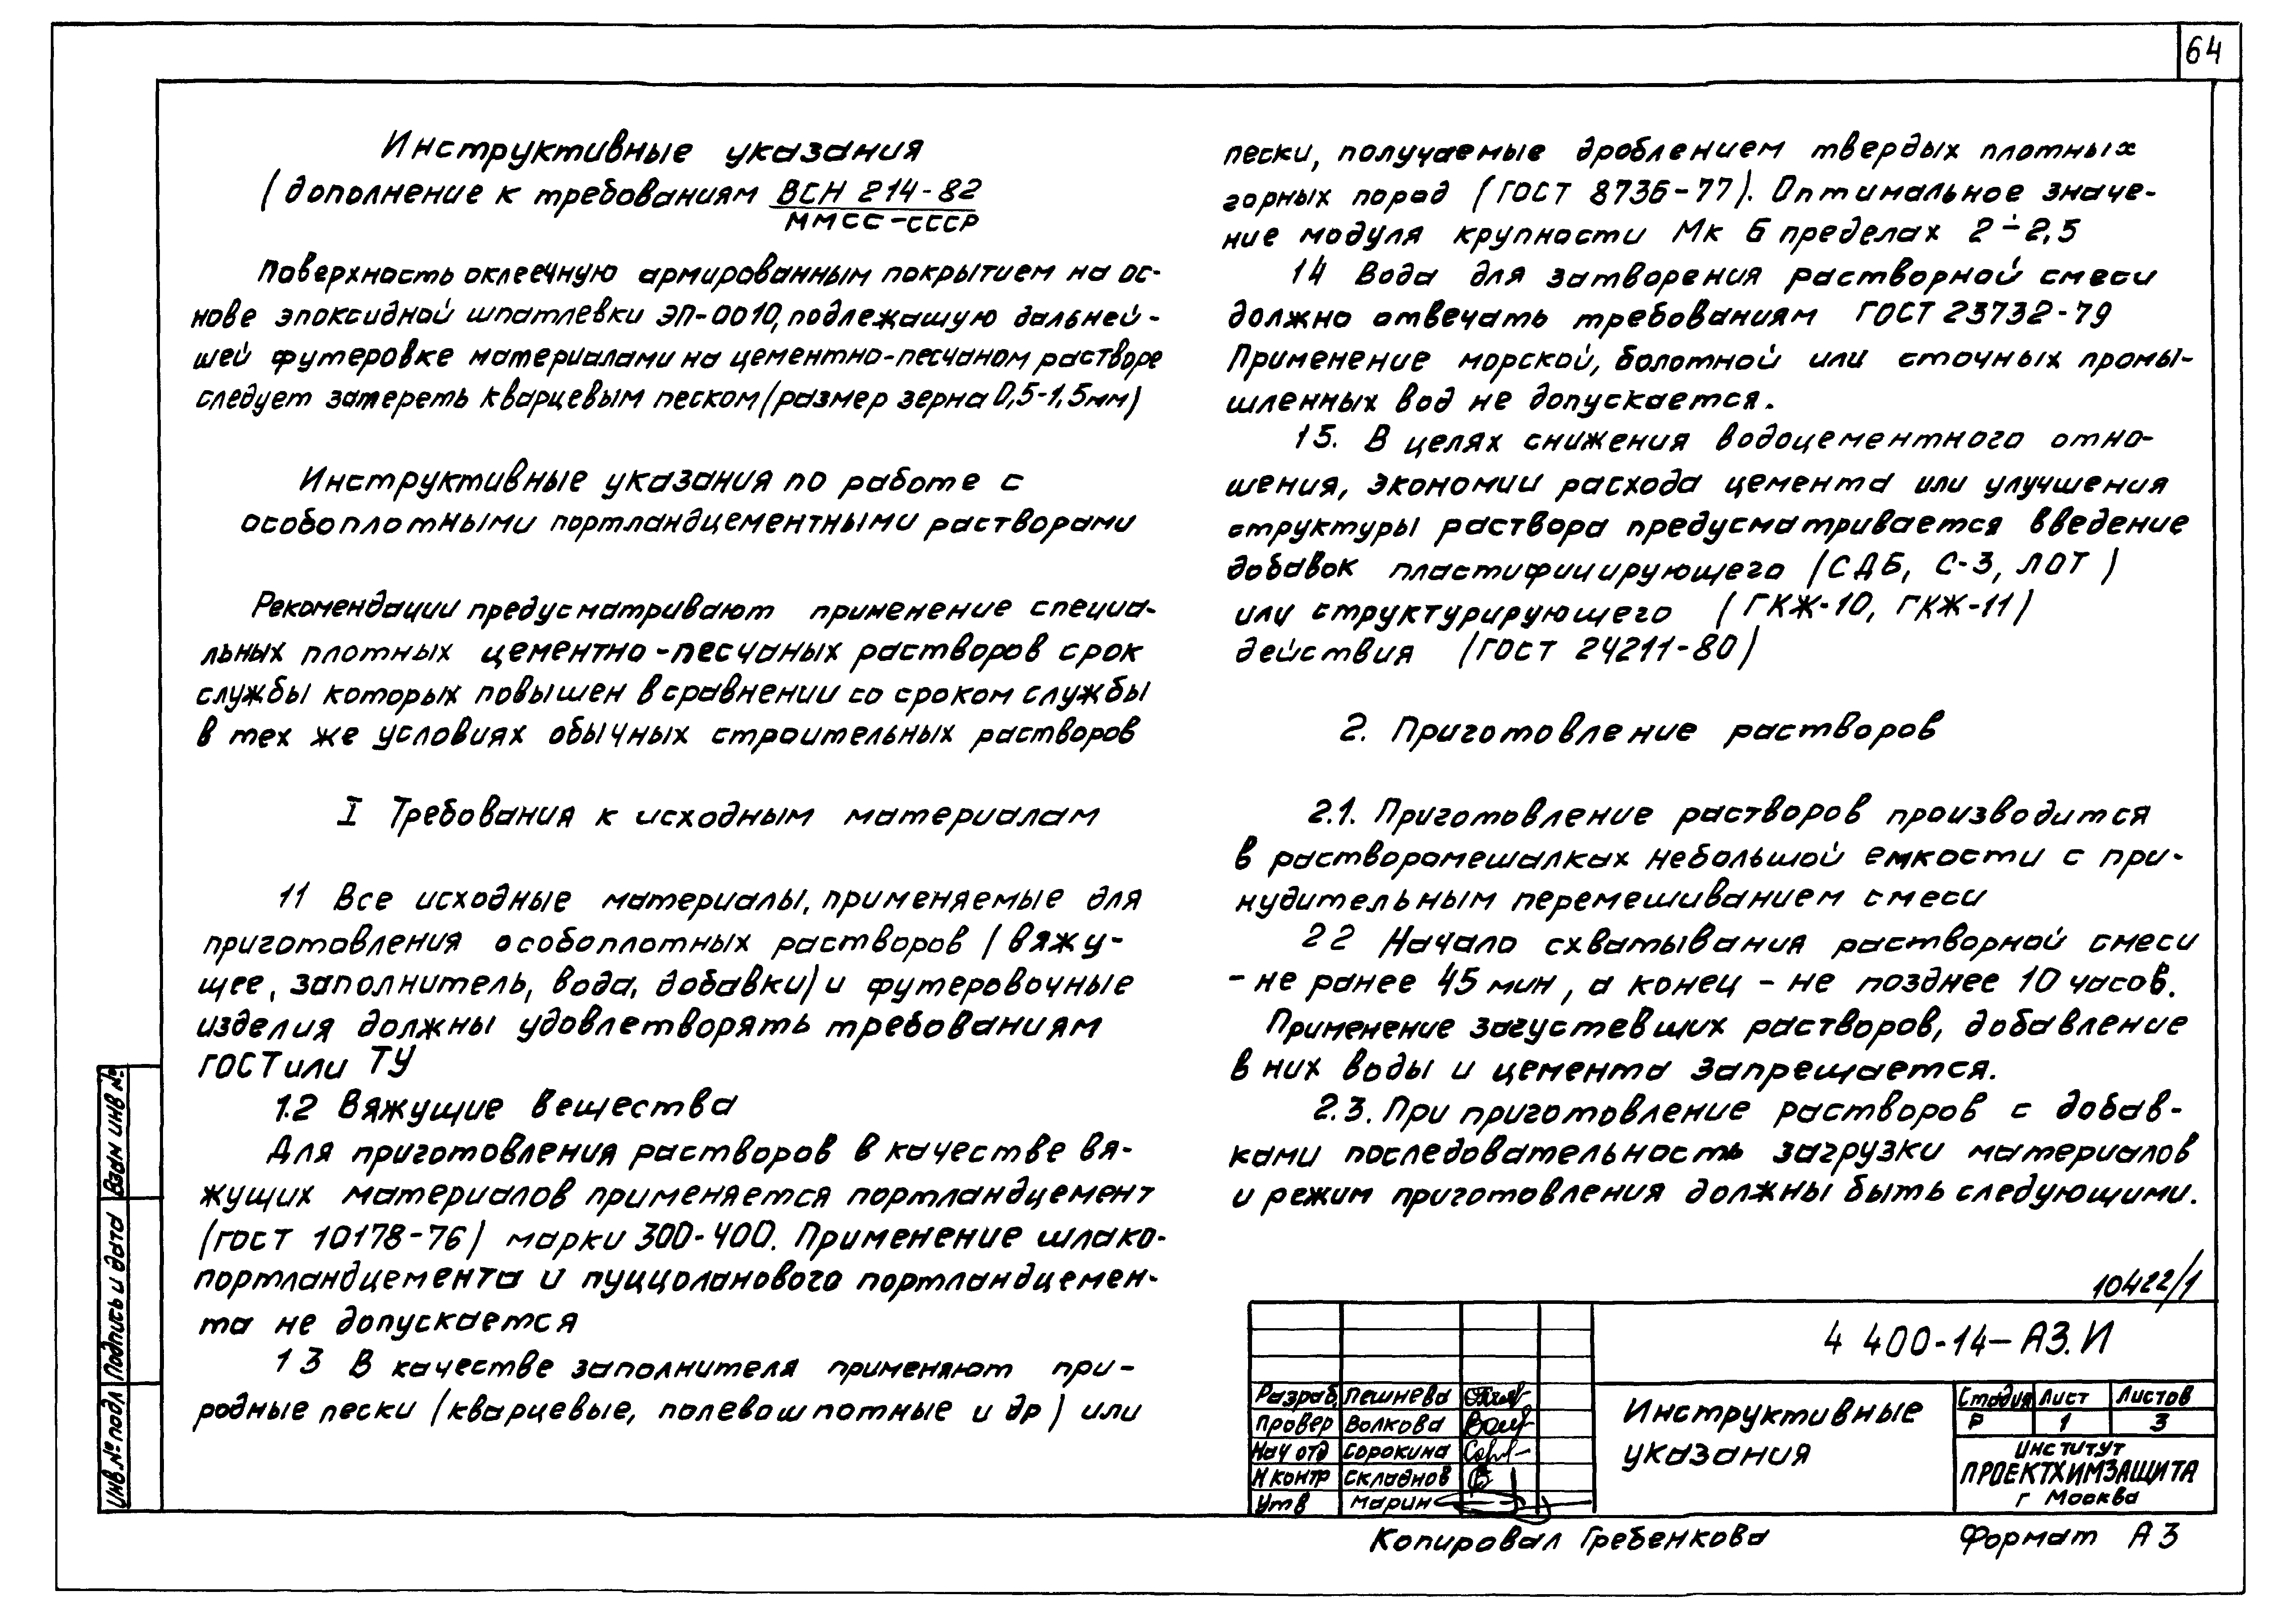 64
Инструктивные указания
(дополнение к требованиям ВСН 214-82
ММСС-СССР
Поверхность оклеечную армированным покрытием на ос-
нове эпоксидной шпатлевки ЭП-0010, подлежащую дальней-
шей футеровке материалами на цементно-песчаном растворе
следует затереть кварцевым песком (размер зерна 0,5-1,5мм)
Инструктивные указания по работе с
особоплотными портландцементными растворами
Рекомендации предусматривают применение специа-
льных плотных цементно-песчаных растворов срок
службы которых повышен в сравнении со сроком службы
в тех же условиях обычных строительных растворов
I Требования к исходным материалам
11 Все исходные материалы, применяемые для
приготовления особоплотных растворов (вяжу-
щее, заполнитель, вода, добавки) и футеровочные
изделия должны удовлетворять требованиям
ГОСТ или ТУ
1.2 Вяжущие вещества
Для приготовления растворов в качестве вя-
жущих материалов применяется портландцемент
(ГОСТ 10178-76) марки 300-400. Применение шлако-
портландцемента и пуццоланового портландцемен-
та не допускается
1 3 В качестве заполнителя применяют при-
родные пески (кварцевые, полевошпатные и др) или
пески, получаемые дроблением твердых плотных
горных пород (ГОСТ 8736-77). Оптимальное значе-
ние модуля крупности Мк в пределах 2÷2,5
14 Вода для затворения растворной смеси
должно отвечать требованиям ГОСТ 23732-79
Применение морской, болотной или сточных промы-
шленных вод не допускается.
15. В целях снижения водоцементного отно-
шения, экономии расхода цемента или улучшения
структуры раствора предусматривается введение
добавок пластифицирующего (СДБ, С-3, ЛОТ)
или структурирующего (ГКЖ-10, ГКЖ-11)
действия (ГОСТ 24211-80)
2. Приготовление растворов
2.1. Приготовление растворов производится
в растворомешалках небольшой емкости с при-
нудительным перемешиванием смеси
2 2 Начало схватывания растворной смеси
- не ранее 45 мин, а конец - не позднее 10 часов.
Применение загустевших растворов, добавление
в них воды и цемента запрещается.
2.3. При приготовление растворов с добав-
ками последовательность загрузки материалов
и режим приготовления должны быть следующими.
10422/1
4 400-14-АЗ.И
Разраб. Пешнева
Провер Волкова
Нач отд Сорокина
Н контр Складнов
Утв Марин
Инструктивные
указания
Стадия Лист Листов
Р 1 3
Институт
ПРОЕКТХИМЗАЩИТА
г Москва
Взам инв №
Подпись и дата
Инв.№ подл
Копировал Гребенкова
Формат А3